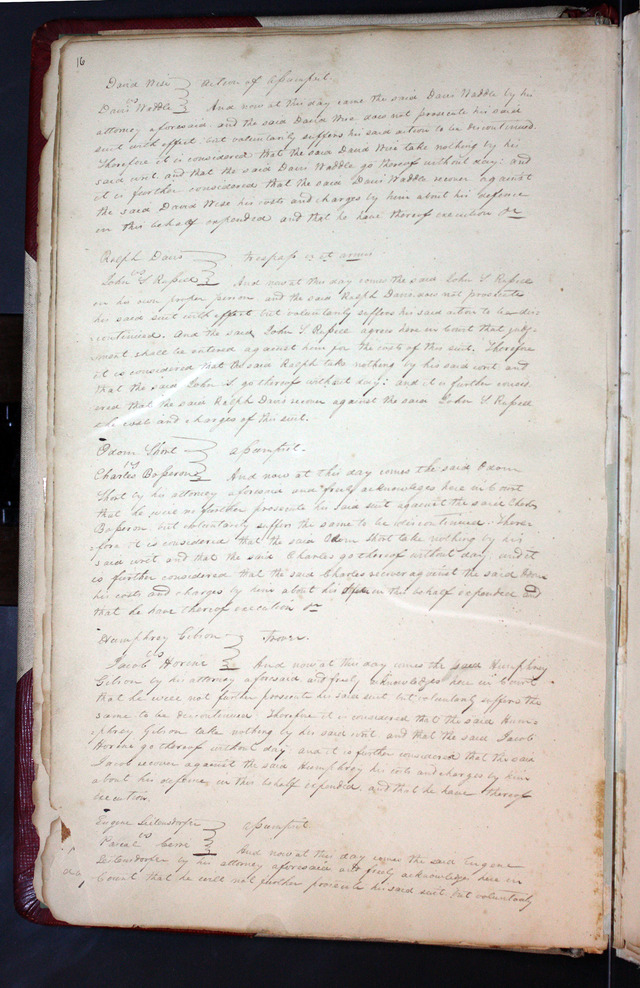 16
David Wise } Action of Assumpsit.
vs
Davis Waddle } And now at this day came the said Davis Waddle by his
attorney aforesaid and the said David Wise does not prosecute his said
suit with effect but voluntarily suffers his said action to be discontinued.
Therefore it is considered that the said David Wise take nothing by his
said writ and that the said Davis Waddle go thereof without day: and
it is further considered that the said Davis Waddle recover against
the said David Wise his cost and charges by him about his defence
in this behalf expended and that he have thereof execution &c
Ralph Davis } trespass vi et armis
vs
John S Russell } And now at this day comes the said John S Russell
in his own proper person and the said Ralph Davis does not prosecute
his said suit with effect but voluntarily suffers his said action to be dis
continued. And the said John S Russell agrees here in Court that judg-
ment shall be entered against him for the costs of this suit. Therefore
it is considered that the said Ralph take nothing by his said writ and
that the said John S go thereof without day: and it is further consid
ered that the said Ralph Davis recover against the said John S Russell
the cost and charges of this suit.
Odom Short } assumpsit.
vs
Charles Bosseron } And now at this day comes the said Odom
Short by his attorney aforesaid and freely acknowledges here in Court
that he will no further prosecute his said suit against the said Charles
Bosseron but voluntarily suffers the same to be discontinued. There-
fore it is considered that the said Odom Short take nothing by his
said writ and that the said Charles go thereof without day and it
is further considered that the said Charles recover against the said Odom
his costs and charges by him about his in this behalf expended and
that he have thereof execution &c
Humphrey Gibson } Trover.
vs
Jacob Horine } And now at this day comes the said Humphrey
Gibson by his attorney aforesaid and freely acknowledges here in Court
that he will not further prosecute his said suit but voluntarily suffers the
same to be discontinued. Therefore it is considered that the said Hum-
phrey Gibson take nothing by his said writ and that the said Jacob
Horine go thereof without day and it is further considered that the said
Jacob recover against the said Humphrey his costs and charges by him
about his defence in this behalf expended, and that he have thereof
execution.
Eugene Leitensdorfer } assumpsit
vs
Pascal Cerre } And now at this day comes the said Eugene
Leitensdorfer by his attorney aforesaid and freely acknowledges here in
Court that he will not further prosecute his said suit but voluntarily